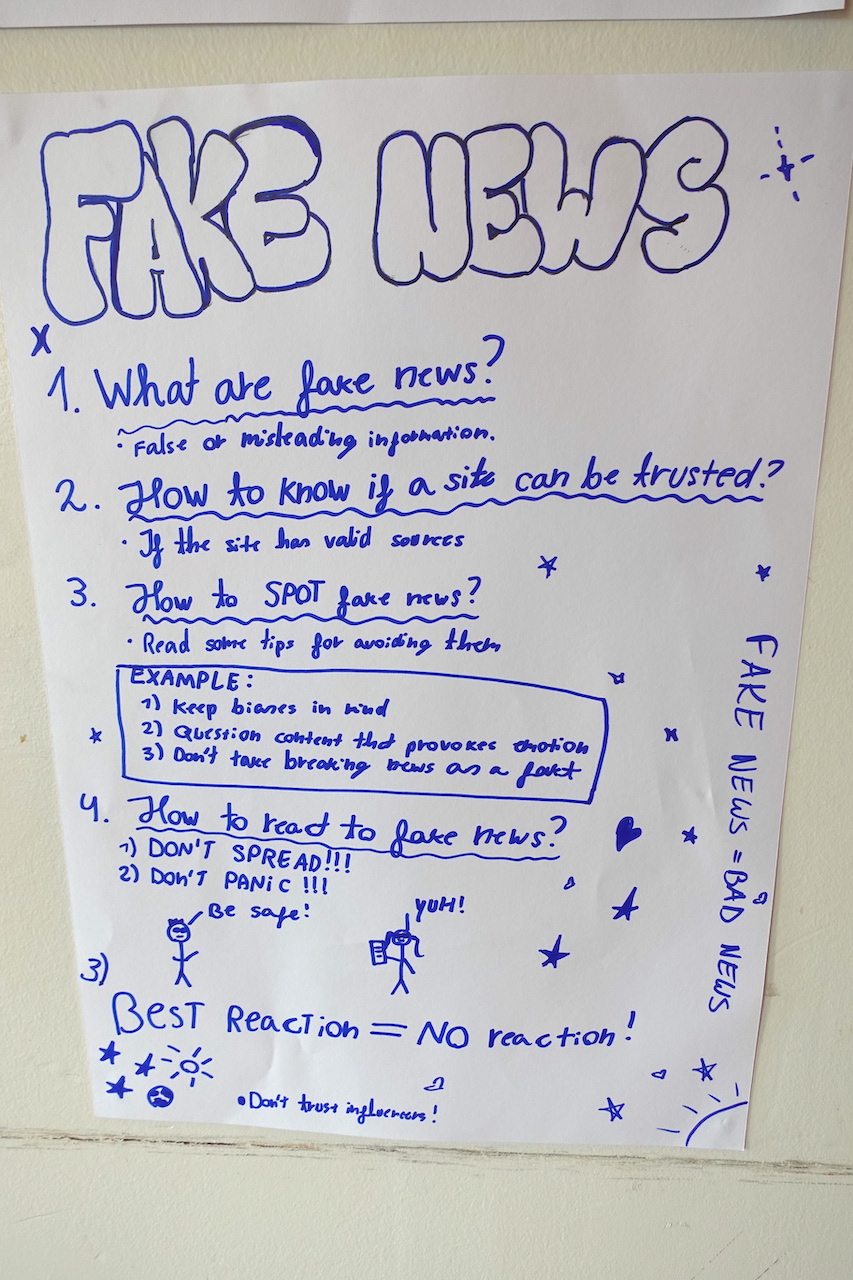 FAKE NEWS
1. What are fake news?
• False or misleading information.
2. How to know if a site can be trusted?
• If the site has valid sources
3. How to SPOT fake news?
• Read some tips for avoiding them
EXAMPLE:
1) Keep biases in mind
2) Question content that provokes emotion
3) Don't take breaking news as a fact
4. How to react to fake news?
1) DON'T SPREAD!!!
2) DON'T PANIC !!!
Be safe!
YUH!
3)
BEST ReacTion = NO reaction!
• Don't trust influencers!
FAKE NEWS = BAD NEWS